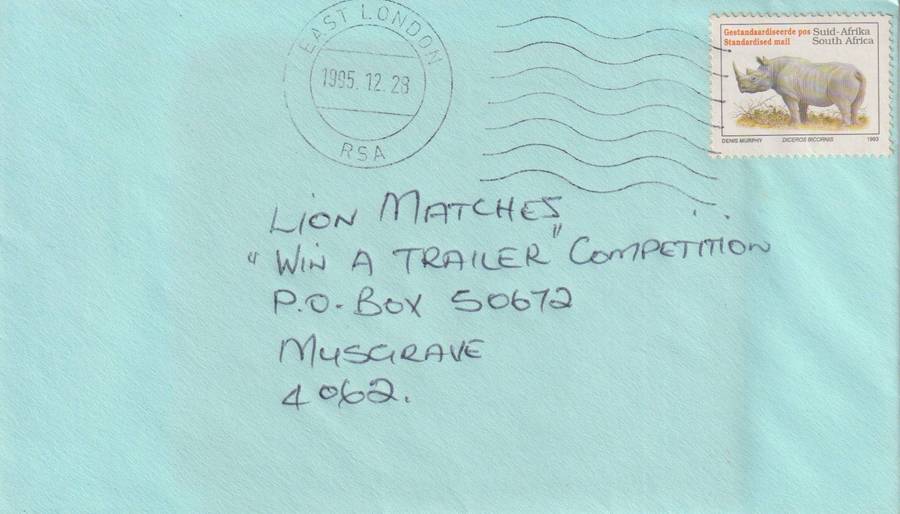 EAST LONDON
1995.12.28
RSA
Gestandaardiseerde pos Suid-Afrika
Standardised mail South Africa
DENIS MURPHY DICEROS BICORNIS 1993
LION MATCHES
"WIN A TRAILER" COMPETITION
P.O. BOX 50672
MUSGRAVE
4062.